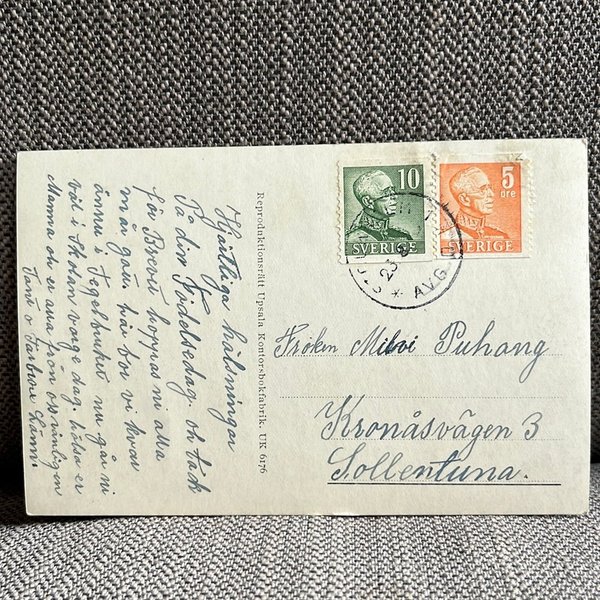 Hjärtliga hälsningar
På din Födelsedag. oh tack
för Brevet hoppas ni alla
mår gått, här bor vi kvar
ännu i Tegelbruket nu går ni
väl i skolan varge dag. hälsa er
Mamma oh er alla från oss vänligen
Tant o Farbror
Reproduktionsrätt Upsala Kontorsbokfabrik. UK 6176
10
SVERIGE
5
öre
SVERIGE
AVG.
Fröken Milvi Puhang
Kronåsvägen 3
Sollentuna.